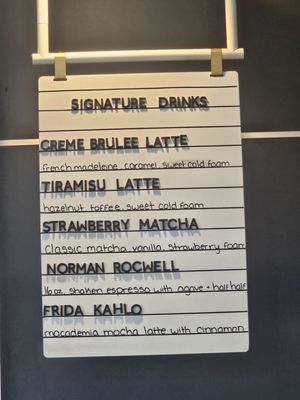 SIGNATURE DRINKS
CREME BRULEE LATTE
french madeleine caramel, sweet cold foam
TIRAMISU LATTE
hazelnut toffee, sweet cold foam
STRAWBERRY MATCHA
classic matcha, vanilla, strawberry foam
NORMAN ROCWELL
16 oz. shaken espresso with agave + half half
FRIDA KAHLO
macadamia mocha latte with cinnamon